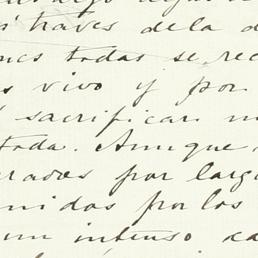 través dela d
nes todas se rec
s vivo y por
sacrificar m
toda. Aunque
rados por larg
nidos por los
un intenso ca